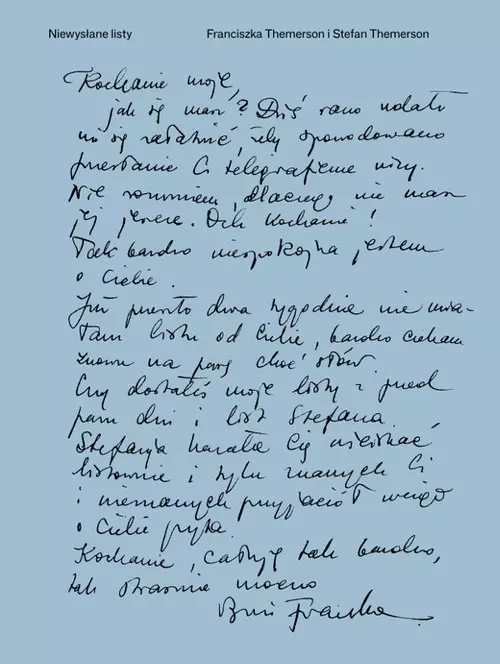 Niewysłane listy
Franciszka Themerson i Stefan Themerson
Kochanie moje,
jak się masz? Dziś rano udało
mi się załatwić, żeby spowodowano
przesłanie Ci telegraficzne wizy.
Nie rozumiem, dlaczego nie masz
jej jeszcze. Och Kochanie!
Tak bardzo niespokojna jestem
o Ciebie.
Już prawie dwa tygodnie nie mia-
łam listu od Ciebie, bardzo czekam
znowu na parę choć słów.
Czy dostałeś moje listy z przed
paru dni i list Stefana.
Stefania kazała Cię uściskać
listownie i tylu znanych Ci
i nieznanych przyjaciół wciąż
o Ciebie pyta.
Kochanie, całuję tak bardzo,
tak strasznie mocno
Franciszka.